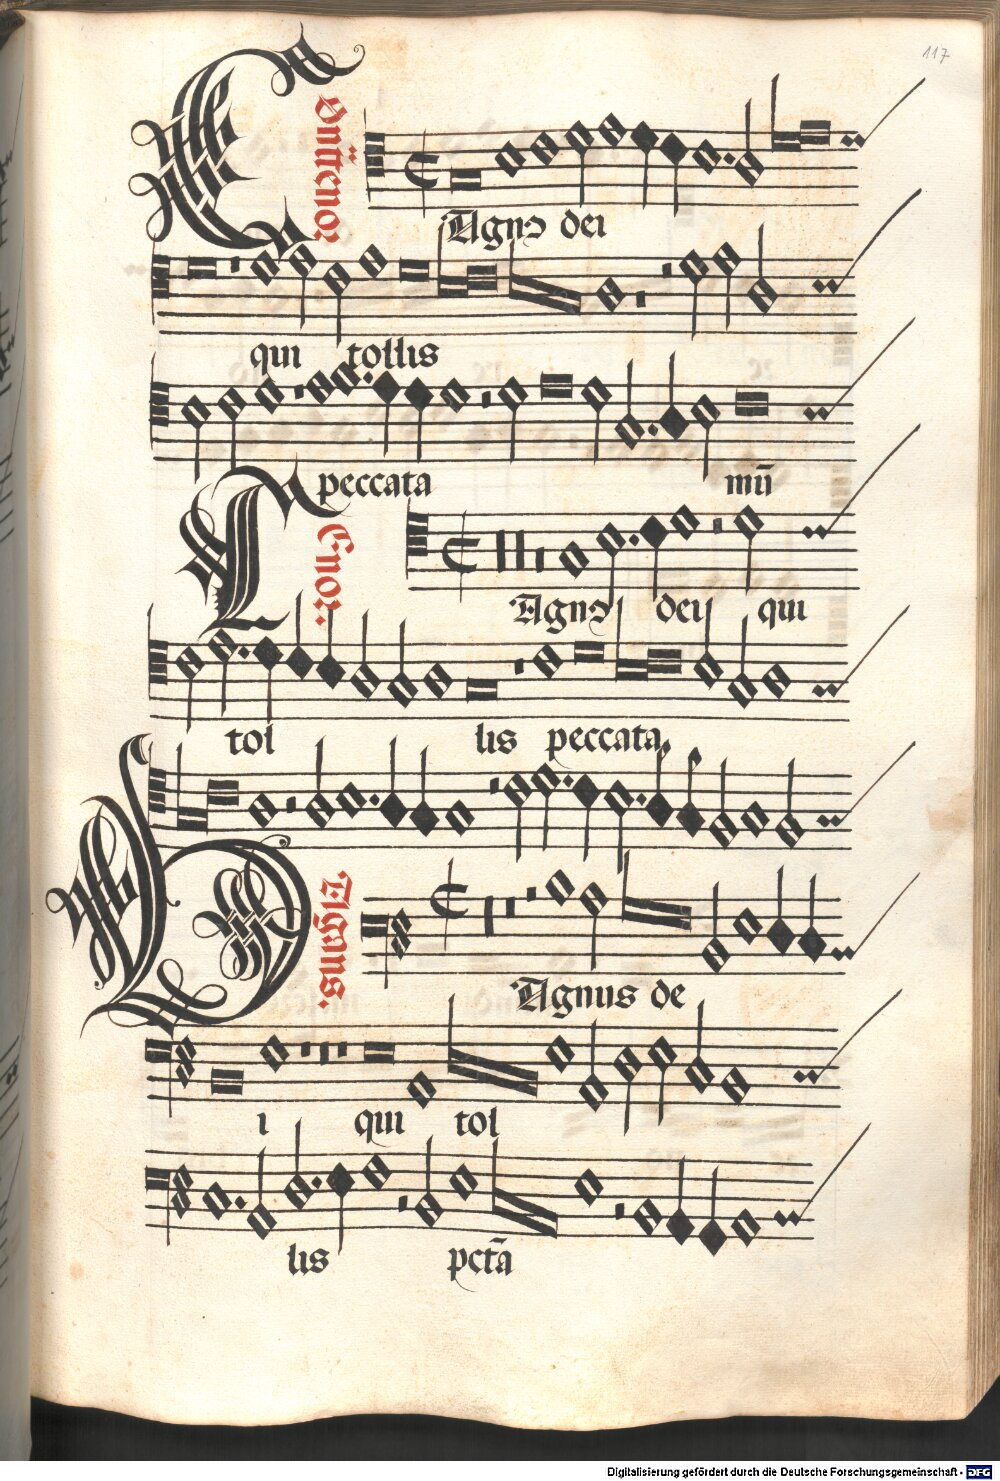 117
Contratenor
Agnꝰ dei
qui tollis
peccata mū
Tenor.
Agnꝰ dei qui
tol lis peccata
Agnus de
i qui tol
lis pctā
Digitalisierung gefördert durch die Deutsche Forschungsgemeinschaft - DFG